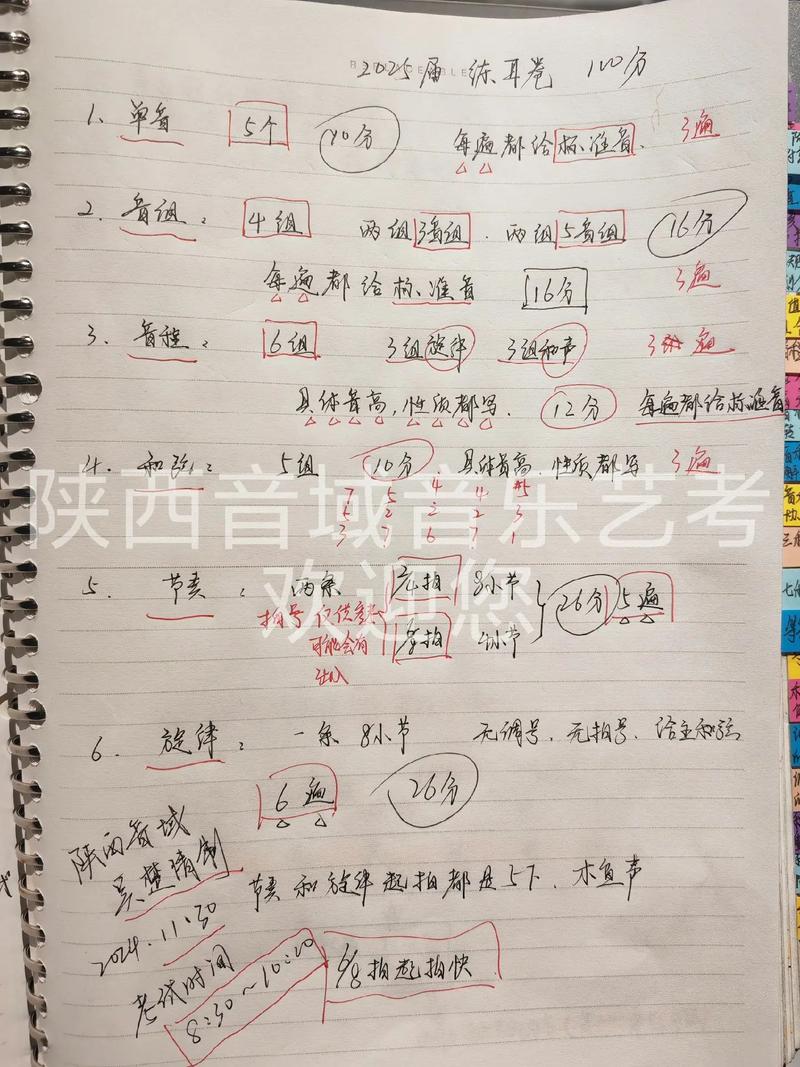 2025届 练耳卷 100分
1、单音 5个 10分 每遍都给标准音、 3遍
2、音组： 4组 两组3音组、两组5音组 16分
每遍都给标准音 16分 3遍
3、音程： 6组 3组旋律 3组和声 3遍
具体音高，性质都写、 12分 每遍都给标准音
4、和弦： 5组 10分 具体音高、性质都写 3遍
7 5 4 4 #5
5 2 2 2 3
3 7 6 7 1
陕西音域音乐艺考
欢迎您
5、节奏： 两条 8小节 26分 5遍
拍号仅供参考
可能会有
出入
小节
6、旋律： 一条 8小节 无调号、无拍号、给主和弦
6遍 26分
陕西音域
节奏和旋律起拍都是5下、木鱼声
2024.11.30
考试时间
8:30~10:20
6/8拍起拍快